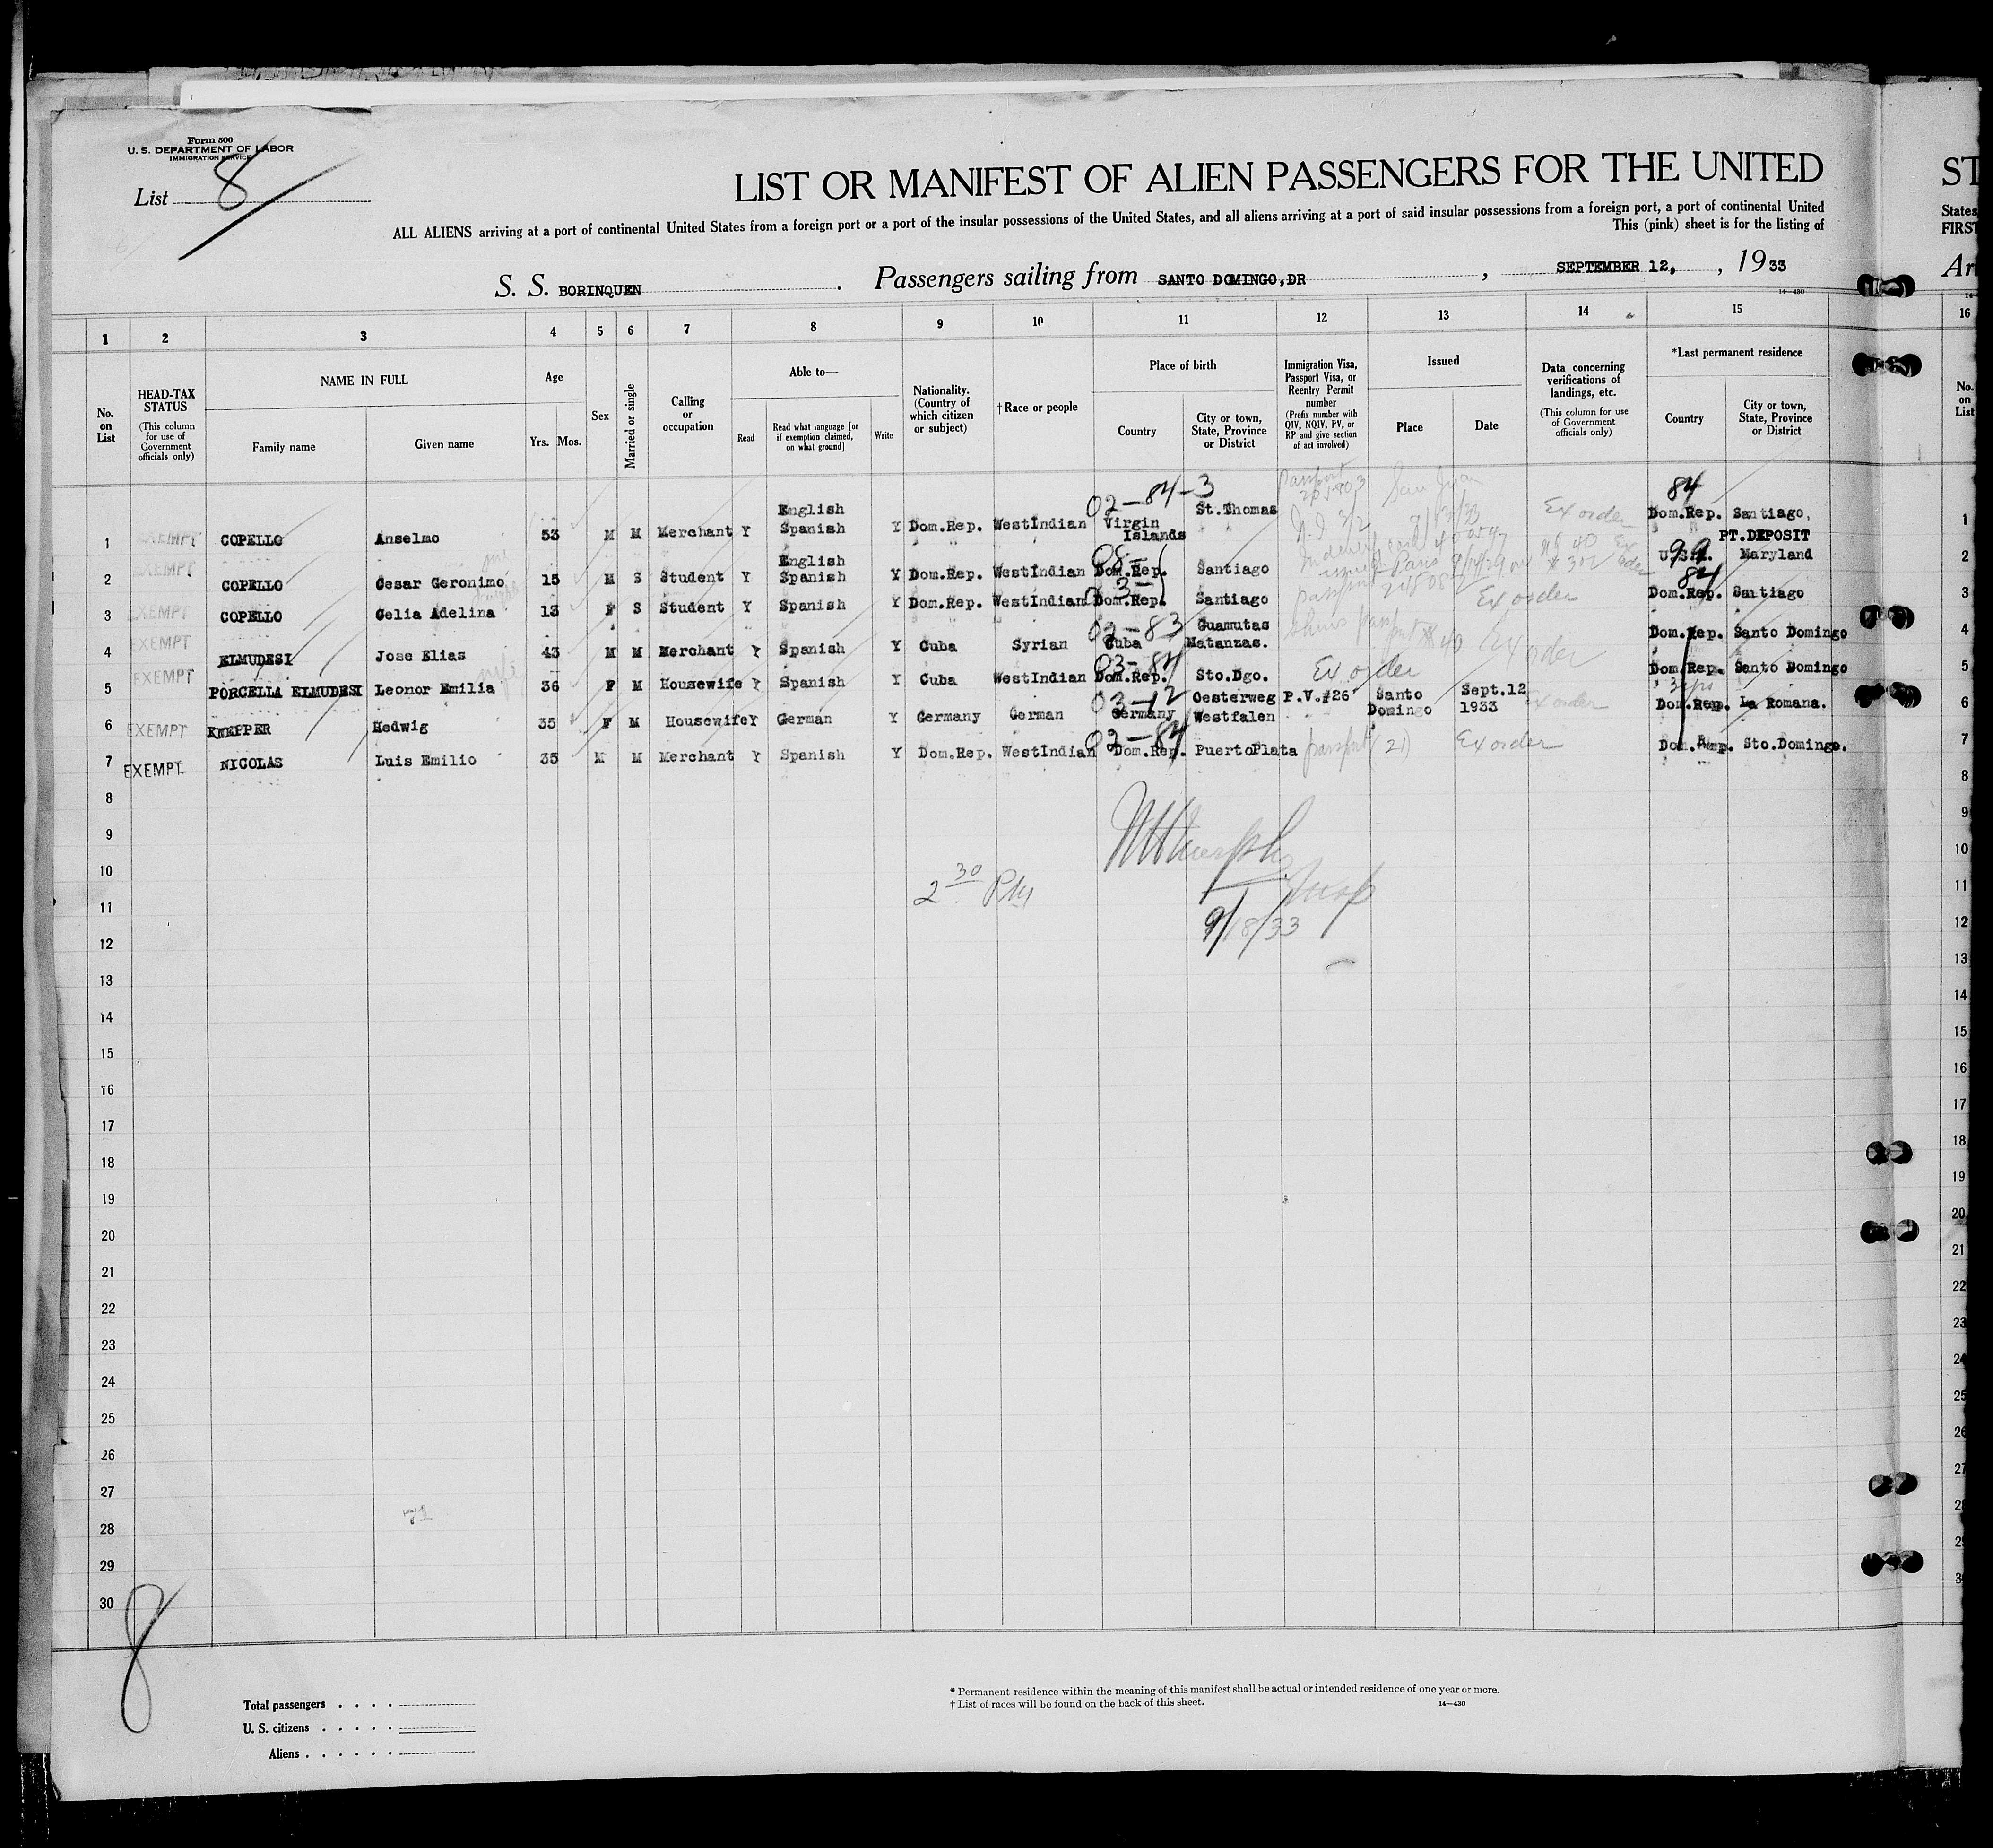 Form 500
U. S. DEPARTMENT OF LABOR
IMMIGRATION SERVICE
List 8
LIST OR MANIFEST OF ALIEN PASSENGERS FOR THE UNITED
ST
ALL ALIENS arriving at a port of continental United States from a foreign port or a port of the insular possessions of the United States, and all aliens arriving at a port of said insular possessions from a foreign port, a port of continental United
States
This (pink) sheet is for the listing of
FIRST
S. S. BORINQUEN . Passengers sailing from SANTO DOMINGO,DR , SEPTEMBER 12, , 1933
Ar
14—430
1 2 3 4 5 6 7 8 9 10 11 12 13 14 15 16
No. on List
HEAD-TAX STATUS (This column for use of Government officials only)
NAME IN FULL
Family name Given name
Age
Yrs. Mos.
Sex
Married or single
Calling or occupation
Able to—
Read
Read what language [or if exemption claimed, on what ground]
Write
Nationality. (Country of which citizen or subject)
† Race or people
Place of birth
Country
City or town, State, Province or District
Immigration Visa, Passport Visa, or Reentry Permit number (Prefix number with QIV, NQIV, PV, or RP and give section of act involved)
Issued
Place Date
Data concerning verifications of landings, etc. (This column for use of Government officials only)
*Last permanent residence
Country
City or town, State, Province or District
No. on List
02-84-3 84
1 EXEMPT COPELLO Anselmo 53 M M Merchant Y English Spanish Y Dom.Rep. WestIndian Virgin Islands St.Thomas Passport San Juan Ex order Dom.Rep. Santiago, 1
2 EXEMPT COPELLO Cesar Geronimo 15 M S Student Y English Spanish Y Dom.Rep. WestIndian Dom.Rep. Santiago U.S.A. PT.DEPOSIT Maryland 2
84
3 EXEMPT COPELLO Celia Adelina 13 F S Student Y Spanish Y Dom.Rep. WestIndian Dom.Rep. Santiago Ex order Dom.Rep. Santiago 3
02-83
4 EXEMPT ELMUDESI Jose Elias 43 M M Merchant Y Spanish Y Cuba Syrian Cuba Guamutas Matanzas. Ex order Dom.Rep. Santo Domingo 4
03-84
5 EXEMPT PORCELLA ELMUDESI Leonor Emilia 36 F M Housewife Y Spanish Y Cuba WestIndian Dom.Rep. Sto.Dgo. Ex order Dom.Rep. Santo Domingo 5
03-12
6 EXEMPT KNEPPER Hedwig 35 F M Housewife Y German Y Germany German Germany Oesterweg Westfalen P.V.#26 Santo Domingo Sept.12 1933 Ex order Dom.Rep. La Romana. 6
02-84
7 EXEMPT NICOLAS Luis Emilio 35 M M Merchant Y Spanish Y Dom.Rep. WestIndian Dom.Rep. PuertoPlata passport 21) Ex order Dom.Rep. Sto.Domingo. 7
8 8
9 9
10 10
11 2 30 PM Insp 11
12 9/18/33 12
13 13
14 14
15 15
16 16
17 17
18 18
19 19
20 20
21 21
22 22
23 23
24 24
25 25
26 26
27 27
28 71 28
29 29
30 30
8
Total passengers
U. S. citizens
Aliens
* Permanent residence within the meaning of this manifest shall be actual or intended residence of one year or more.
† List of races will be found on the back of this sheet. 14—430